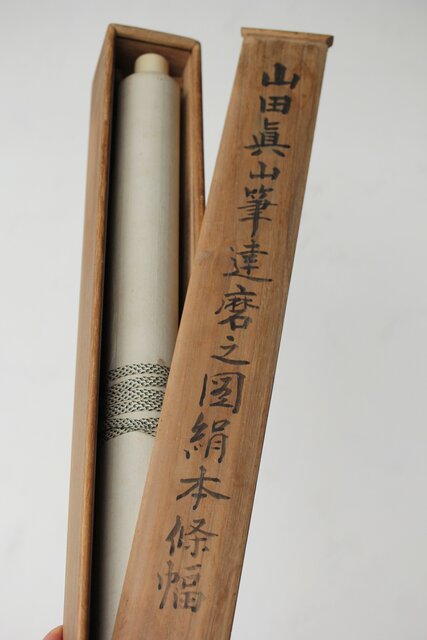 山田眞山筆達磨之図絹本條幅